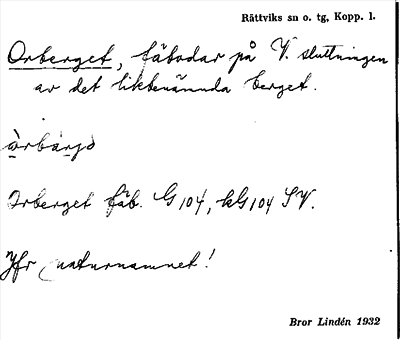 Rättviks sn o. tg, Kopp. l.
Orberget, fäbodar på V. sluttningen
av det liktbenämnda berget.
òrbærjə
Orberget fäb. G 104, kG 104 SV.
Jfr naturnamnet!
Bror Lindén 1932